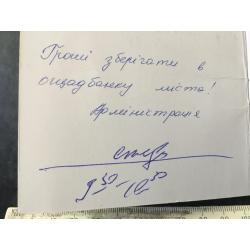 Гроші зберігати в
ощадбанку міста!
Адміністрація
9³⁰-10³⁰